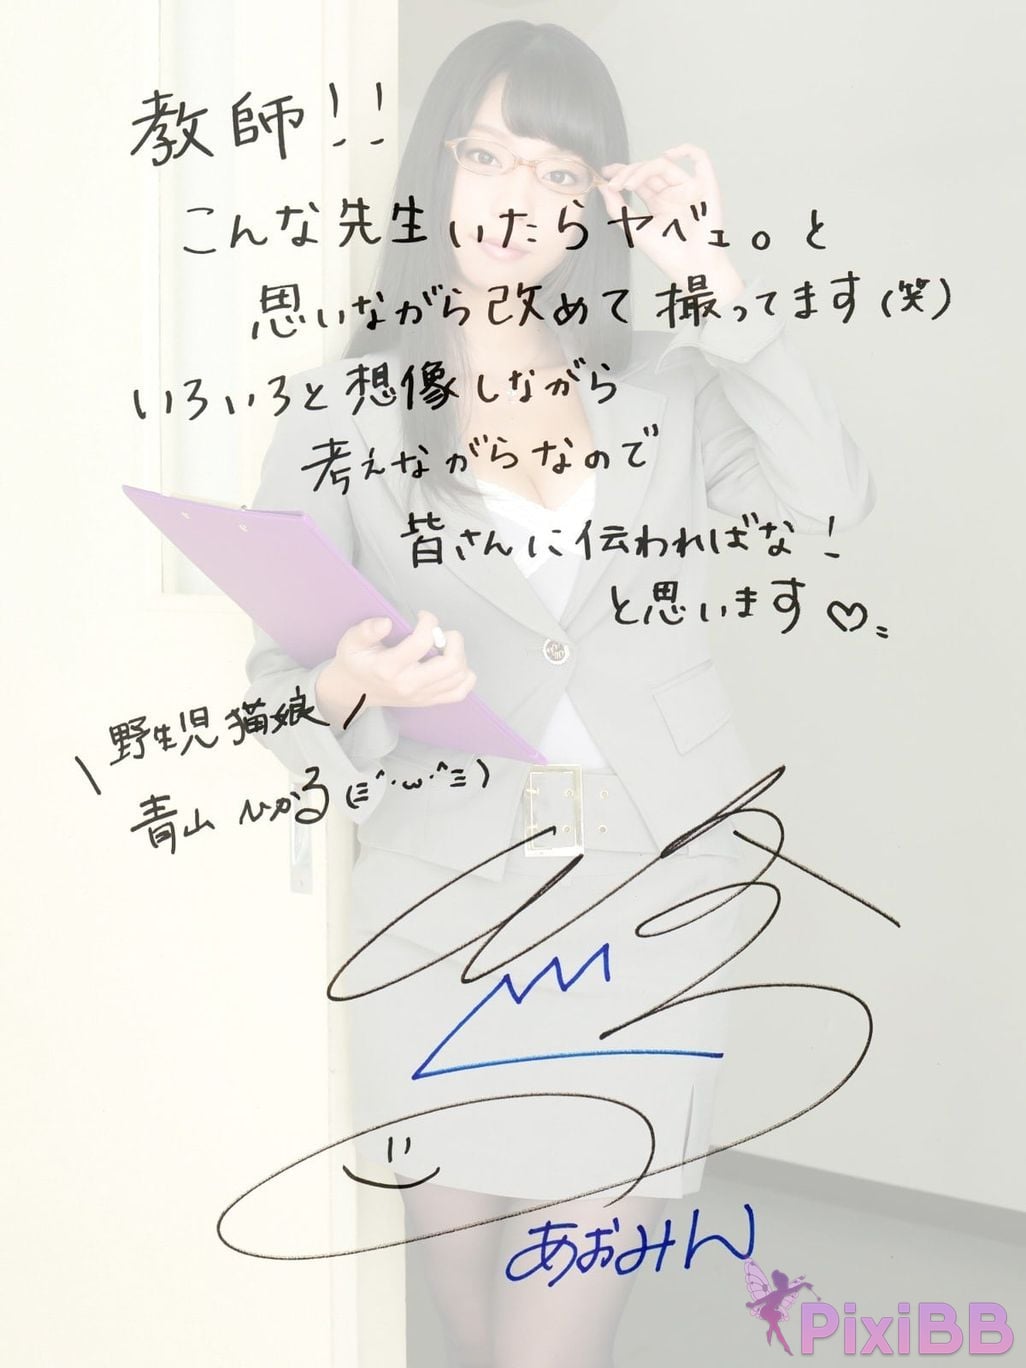 教師!!
こんな先生いたらヤベェ。と
思いながら改めて撮ってます(笑)
いろいろと想像しながら
考えながらなので
皆さんに伝わればな!
と思います♡
\野生児猫娘/
青山ひかる(ミ^・ω・^ミ)
あおみん
PixiBB